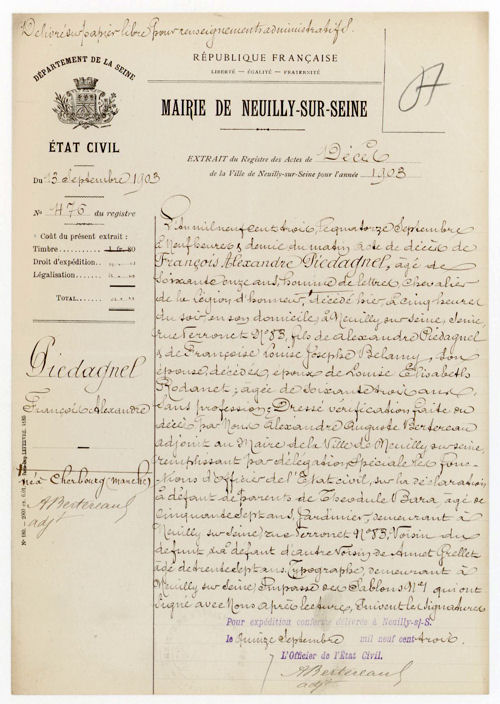 Délivré sur papier libre pour renseignements administratifs.
DÉPARTEMENT DE LA SEINE
RÉPUBLIQUE FRANÇAISE
LIBERTÉ — ÉGALITÉ — FRATERNITÉ
MAIRIE DE NEUILLY-SUR-SEINE
ÉTAT CIVIL
EXTRAIT du Registre des Actes de Décès
de la Ville de Neuilly-sur-Seine pour l'année 1903
Du 13 Septembre 1903
No 476 du registre
Coût du présent extrait :
Timbre 1 fr. 80
Droit d'expédition
Légalisation
TOTAL
Piedagnel
François Alexandre
né à Cherbourg (Manche)
A Bertereau
adjt
L'an mil neuf cent trois, le quatorze Septembre
à Neuf heures & demie du matin, acte de décès de
François Alexandre Piedagnel, âgé de
soixante onze ans, homme de lettres, Chevalier
de la légion d'honneur, décédé hier, à cinq heures
du soir en son domicile, à Neuilly sur seine, Seine,
rue Perronet No 83, fils de Alexandre Piedagnel
& de Françoise Louise Josephe Belamy, son
épouse, décédés, époux de Louise Elisabeth
Rodanet, âgée de soixante trois ans
sans profession; Dressé vérification faite du
décès par Nous Alexandre Auguste Bertereau
adjoint au Maire de la Ville de Neuilly sur seine,
remplissant par délégation spéciale les fonc-
tions d'officier de l'Etat civil, sur la déclaration,
à défaut de parents de Theodule Bara, âgé de
cinquante sept ans, Jardinier, demeurant à
Neuilly sur seine, rue Perronet No 83, Voisin du
défunt & à défaut d'autre Voisin, de Annet Grellet
âgé de trente sept ans, Typographe, demeurant à
Neuilly sur seine, Impasse des Sablons No 1 qui ont
signé avec Nous après lecture, Suivent les signatures
Pour expédition conforme délivrée à Neuilly-s/-S.
le quinze Septembre mil neuf cent trois.
L'Officier de l'État Civil.
A Bertereau
adjt